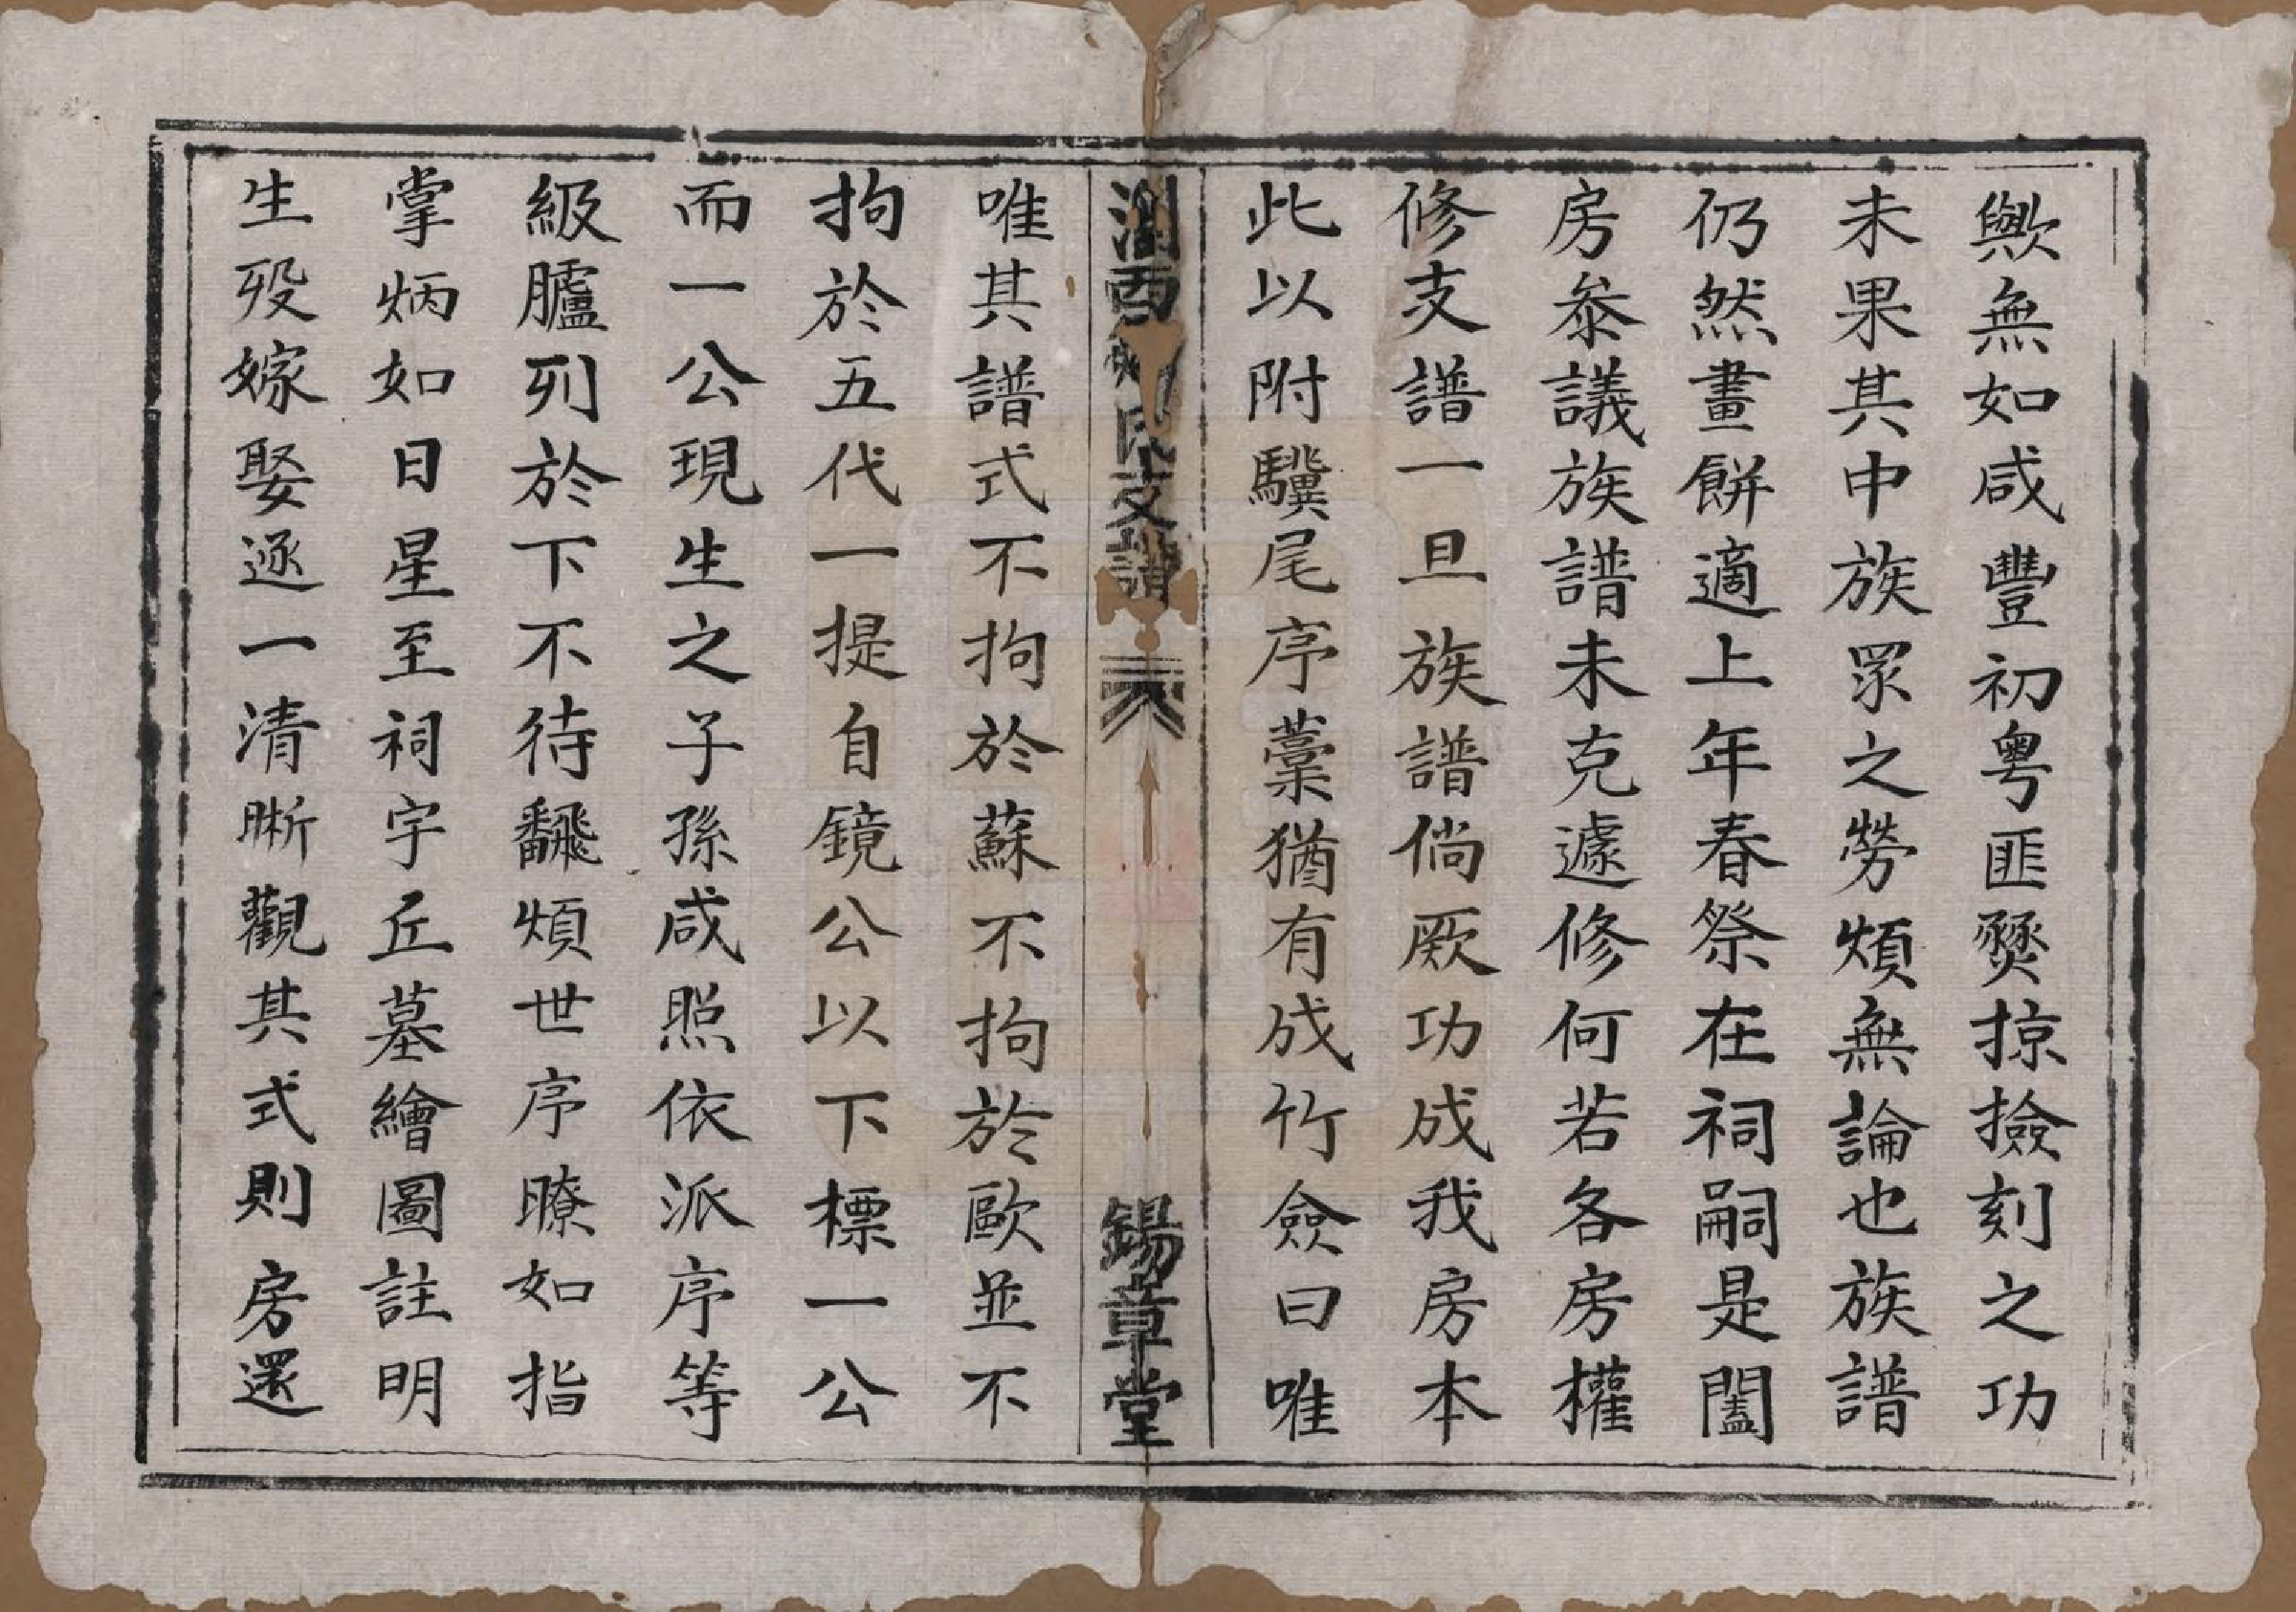 歟無如咸豐初粤匪燹掠撿刻之功
未果其中族眾之勞煩無論也族譜
仍然畫餅適上年春祭在祠嗣是闔
房叅議族譜未克遽修何若各房權
修支譜一旦族譜倘厥功成我房本
此以附驥尾序藁猶有成竹僉曰唯
瀏西 氏支譜
錫章堂
唯其譜式不拘於蘇不拘於歐並不
拘於五代一提自鏡公以下標一公
而一公現生之子孫咸照依派序等
級臚列於下不待翻煩世序暸如指
掌炳如日星至祠宇丘墓繪圖註明
生歿嫁娶逐一清晰觀其式則房還